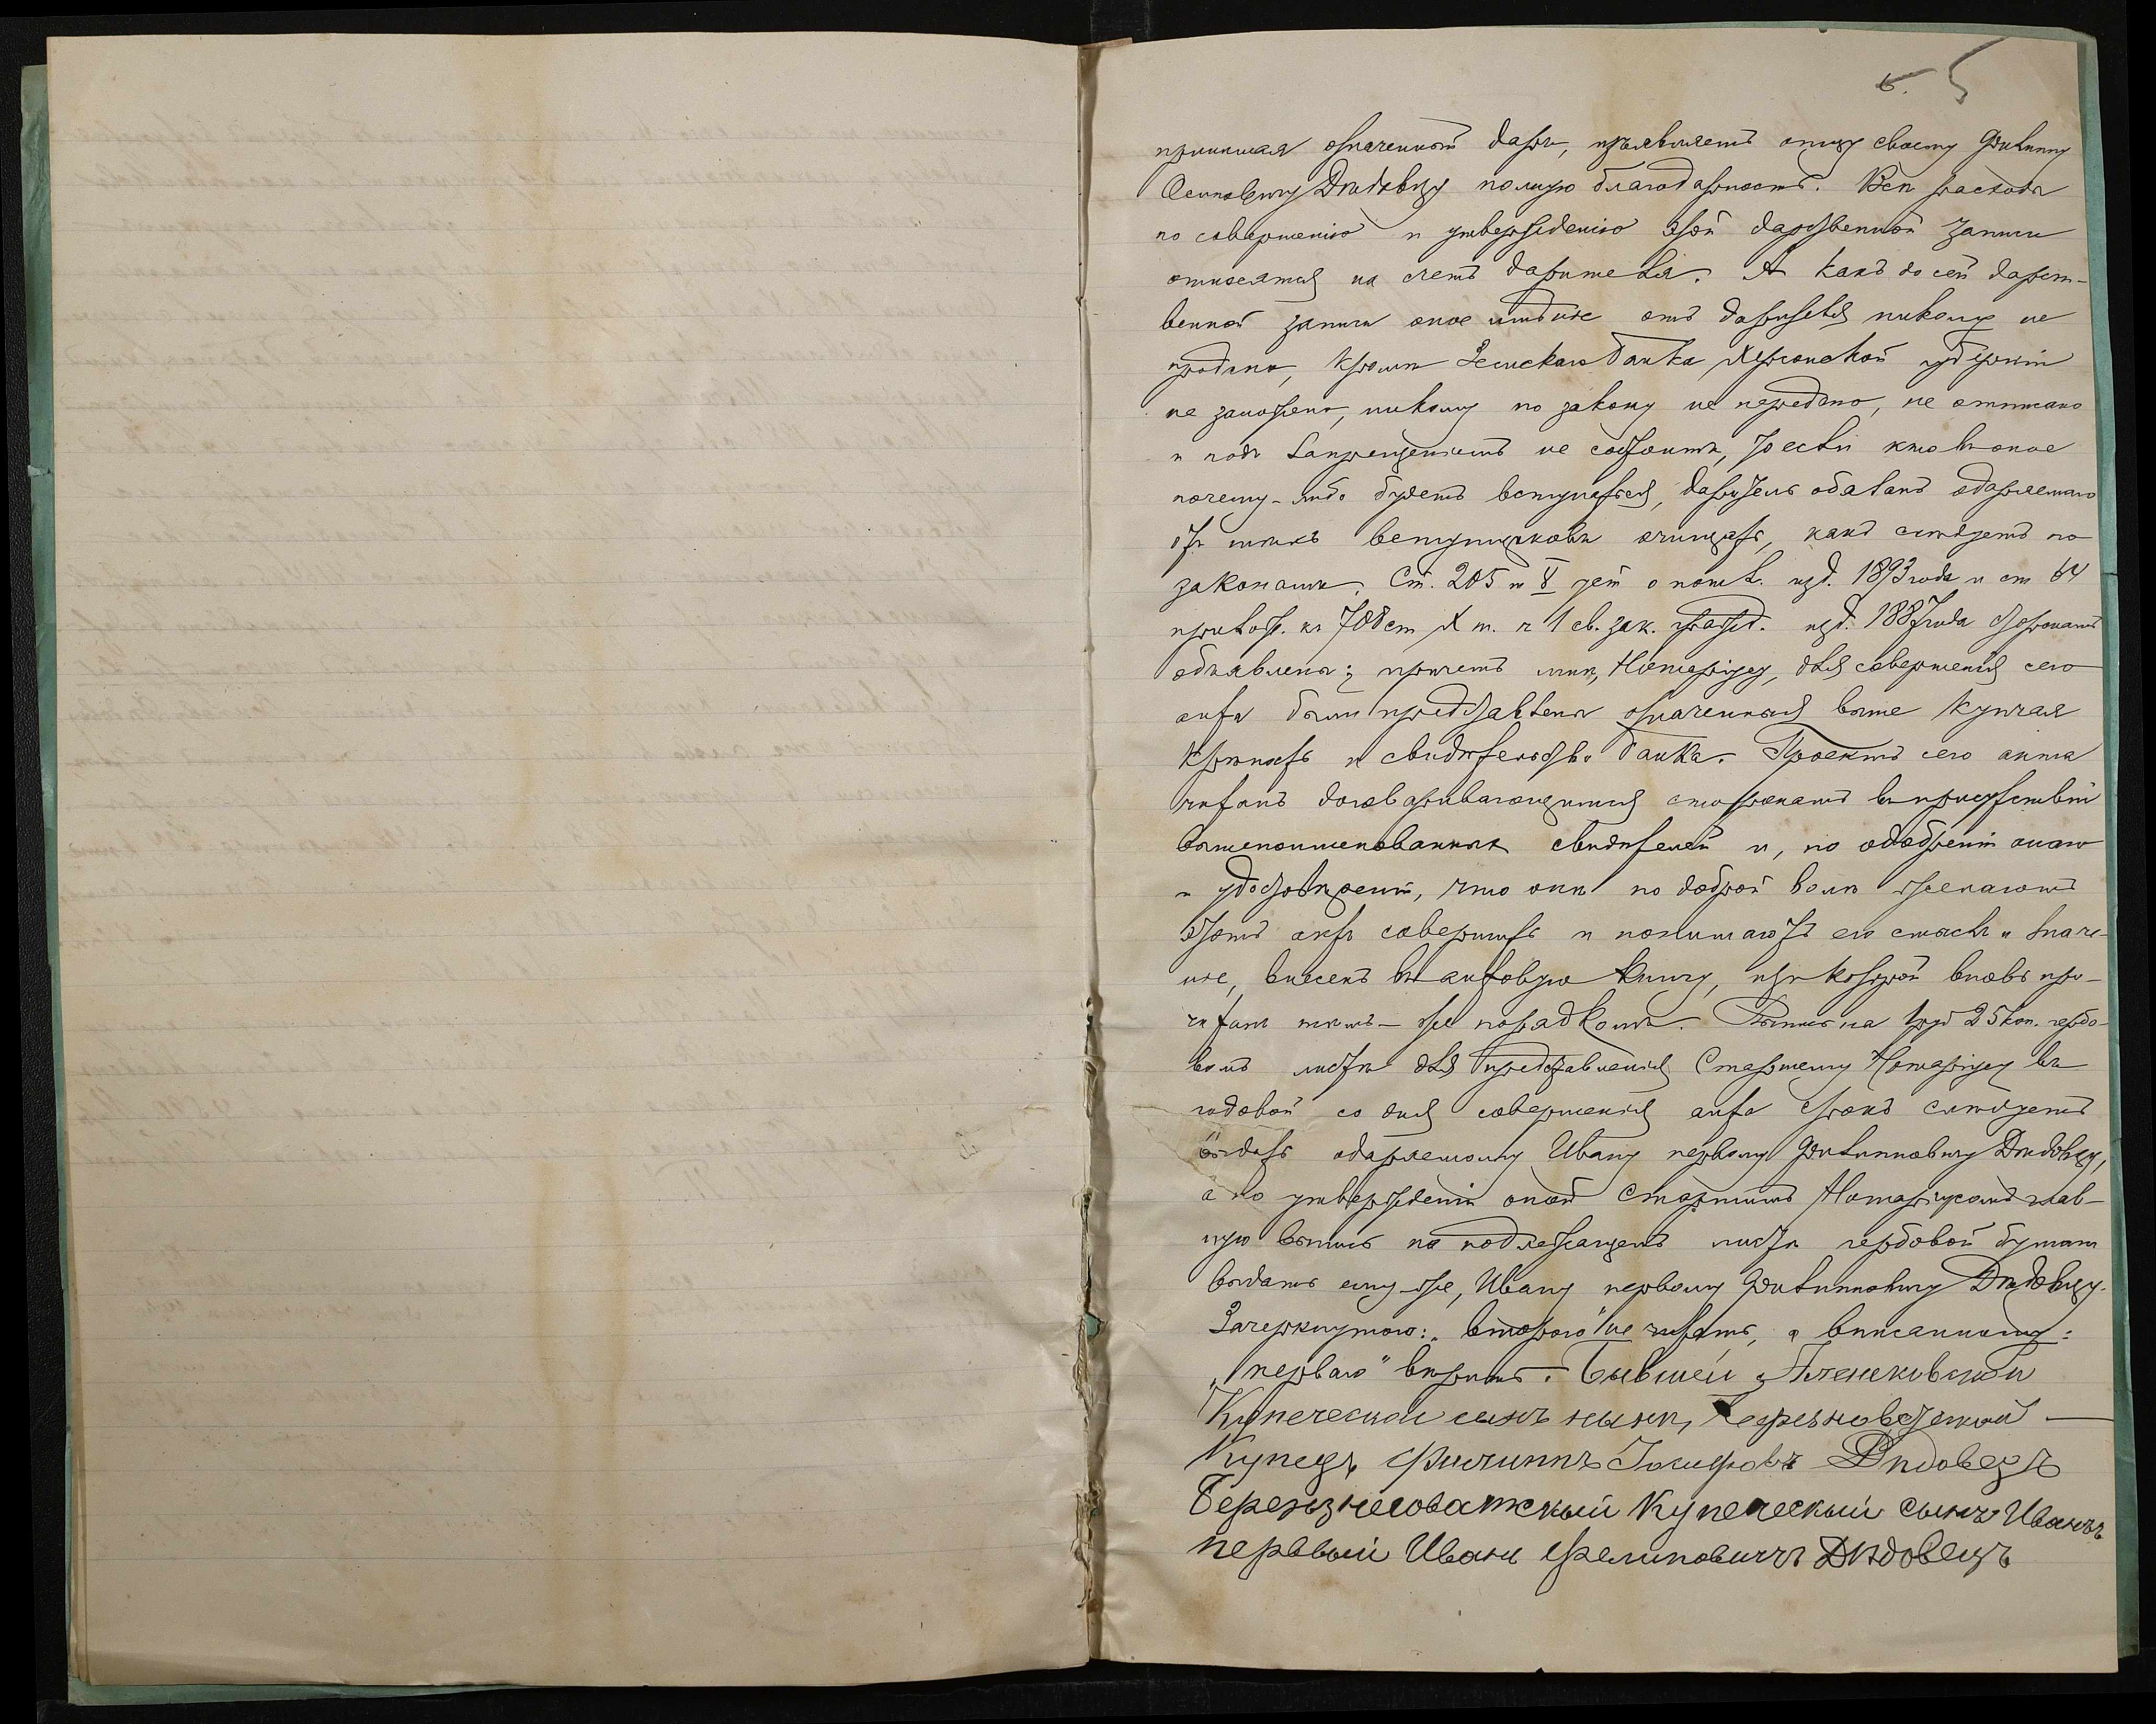 5.
принимая означенный даръ, изъявляетъ отцу своему Филиппу
Осиповичу Дѣдовцу полную благодарность. Всѣ расходы
по совершенію и утвержденію этой дарственной записи
относятся на счетъ дарителя. А какъ до сей дарст-
венной записи оное имѣніе отъ дарителя никому не
продано, кромѣ Земскаго банка Херсонской губерніи
не заложено, никому по закону не передано, не отписано
и подъ запрещеніемъ не состоитъ, то если кто въ оное
почему-либо будетъ вступаться, даритель обязанъ одаряемаго
отъ тѣхъ вступщиковъ очищать, какъ слѣдуетъ по
законамъ. Ст. 205 и V уст о пошл. изд. 1893 года и ст 64
прилож. къ 708 ст X т. ч 1 св. зак. гражд. изд. 1887 года сторонамъ
объявлены; причемъ мнѣ, Нотаріусу, для совершенія сего
акта были представлены означенныя выше купчая
крѣпость и свидѣтельство банка. Проектъ сего акта
читанъ договаривающимся сторонамъ въ присутствіи
вышепоименованныхъ свидѣтелей и, по одобреніи онаго
и удостовѣреніи, что они по доброй волѣ желаютъ
этотъ актъ совершить и понимаютъ его смыслъ и значе-
ніе, внесенъ въ актовую книгу, изъ которой вновь про-
читанъ тѣмъ-же порядкомъ. Выпись на 1 руб 25 коп. гербо-
вомъ листѣ для представленія Старшему Нотаріусу въ
годовой со дня совершенія акта срокъ слѣдуетъ
выдать одаряемому Ивану первому Филипповичу Дѣдовцу,
а по утвержденіи оной Старшимъ Нотаріусомъ глав-
ную выпись на подлежащемъ листѣ гербовой бумаги
выдать ему-же, Ивану первому Филипповичу Дѣдовцу.
Зачеркнутаго: „втораго" не читать, а вписанному:
„перваго" вѣрить. Бывшей
Купеческой сынъ нынѣ,
Купецъ Филиппъ Іосифовъ Дѣдовецъ
Березнеговатскый Купеческый сынъ Иванъ
первый Иванъ Фелиповичъ Дѣдовецъ